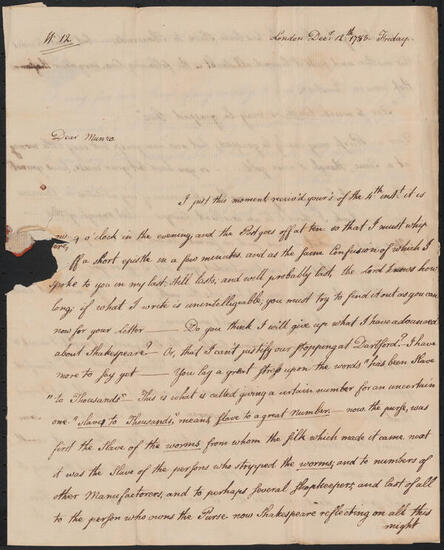 No. 12.
London Decr. 12th. 1788 Friday.
Dear Munro
I just this moment receiv'd your's of the 4th inst. it is
now 9 o'clock in the evening, and the Post goes off at ten so that I must whip
off a short epistle in a few minutes and as the same Confusion of which I
spoke to you in my last, still lasts; and will probably last, the Lord knows how
long; if what I write is unintelligable, you must try to find it out as you can
now for your letter — Do you think I will give up what I have advanced
about Shakespeare? Or, that I can't justify our stopping at Dartford? I have
more to say yet — You lay a great stress upon the words "has been Slave
"to Thousands" — This is what is called giving a certain number for an uncertain
one "Slave to Thousands," means Slave to a great number — now the purse, was
first the Slave of the worms from whom the silk which made it came next
it was the Slave of the persons who stripped the worms; and to numbers of
other Manufactorers, and to perhaps several shopkeepers, and last of all
to the person who owns the Purse now Shakespeare reflecting on all this
might